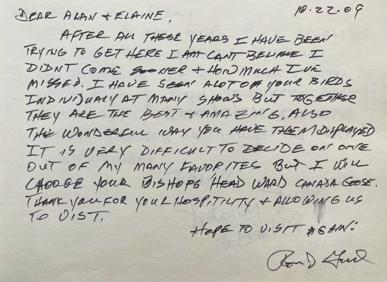 DEAR ALAN + ELAINE, 10.22.09
AFTER ALL THESE YEARS I HAVE BEEN
TRYING TO GET HERE I AM CANT BELIEVE I
DIDNT COME SOONER + HOW MUCH I'VE
MISSED. I HAVE SEEN ALOT OF YOUR BIRDS
INDIVIUALY AT MANY SHOWS BUT TOGETHER
THEY ARE THE BEST + AMAZING. ALSO
THE WONDERFUL WAY YOU HAVE THEM DISPLAYED
IT IS VERY DIFFICULT TO DECIDE ON ONE
OUT OF MY MANY FAVORITES BUT I WILL
CHOOSE YOUR BISHOPS HEAD WARD CANADA GOOSE.
THANK YOU FOR YOUR HOSPITILITY + ALLOWING US
TO VIST.
HOPE TO VISIT AGAIN!